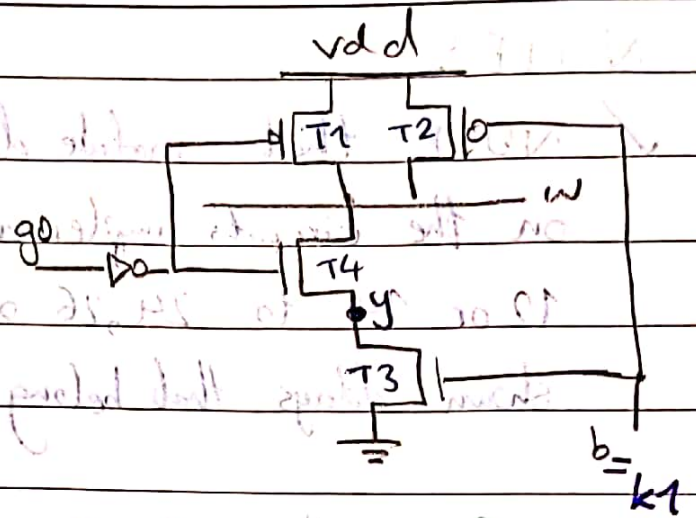 vdd
T1 T2
w
g0
T4
y
T3
b =
k1